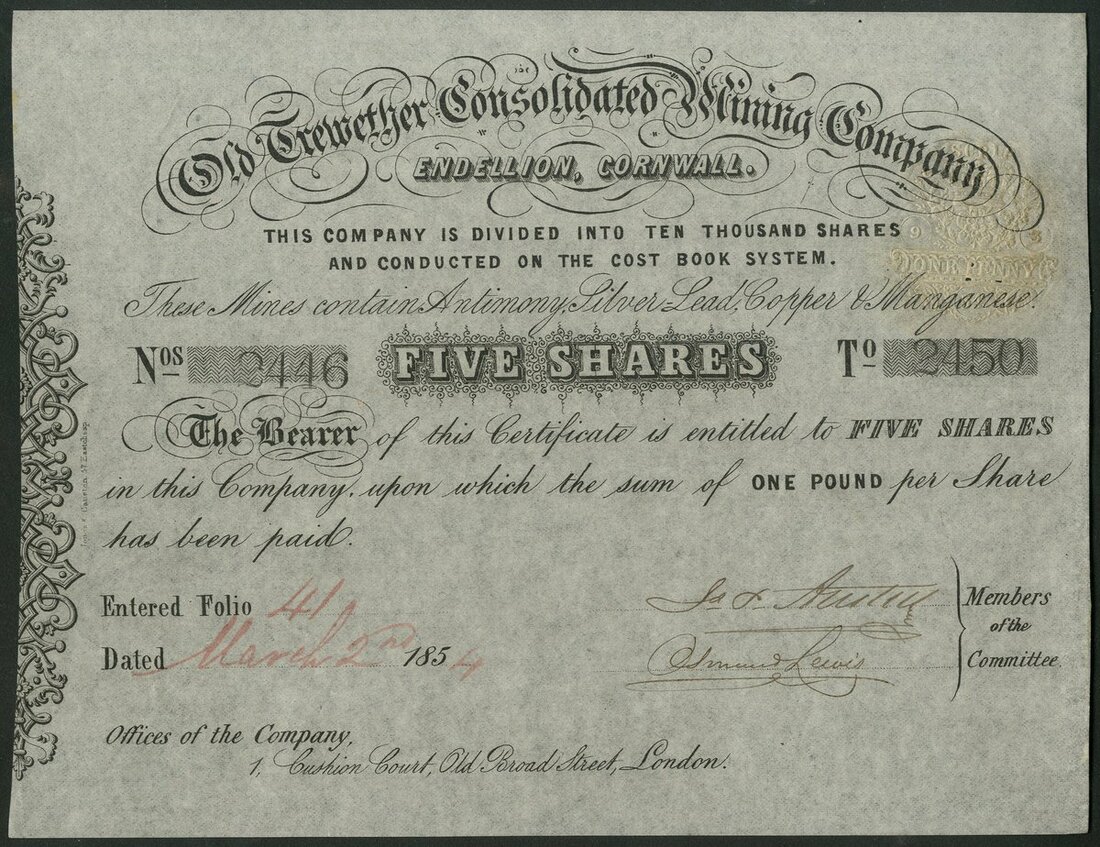 Old Trewether Consolidated Mining Company
ENDELLION, CORNWALL.
THIS COMPANY IS DIVIDED INTO TEN THOUSAND SHARES
AND CONDUCTED ON THE COST BOOK SYSTEM.
ONE PENNY
These Mines contain Antimony, Silver-Lead, Copper & Manganese.
Nos 2446 FIVE SHARES To 2450
The Bearer of this Certificate is entitled to FIVE SHARES
in this Company, upon which the sum of ONE POUND per Share
has been paid.
Entered Folio 41
Dated March 2nd 1854
Austen
Osmund Lewis
Members
of the
Committee
Offices of the Company,
1, Cushion Court, Old Broad Street, London.